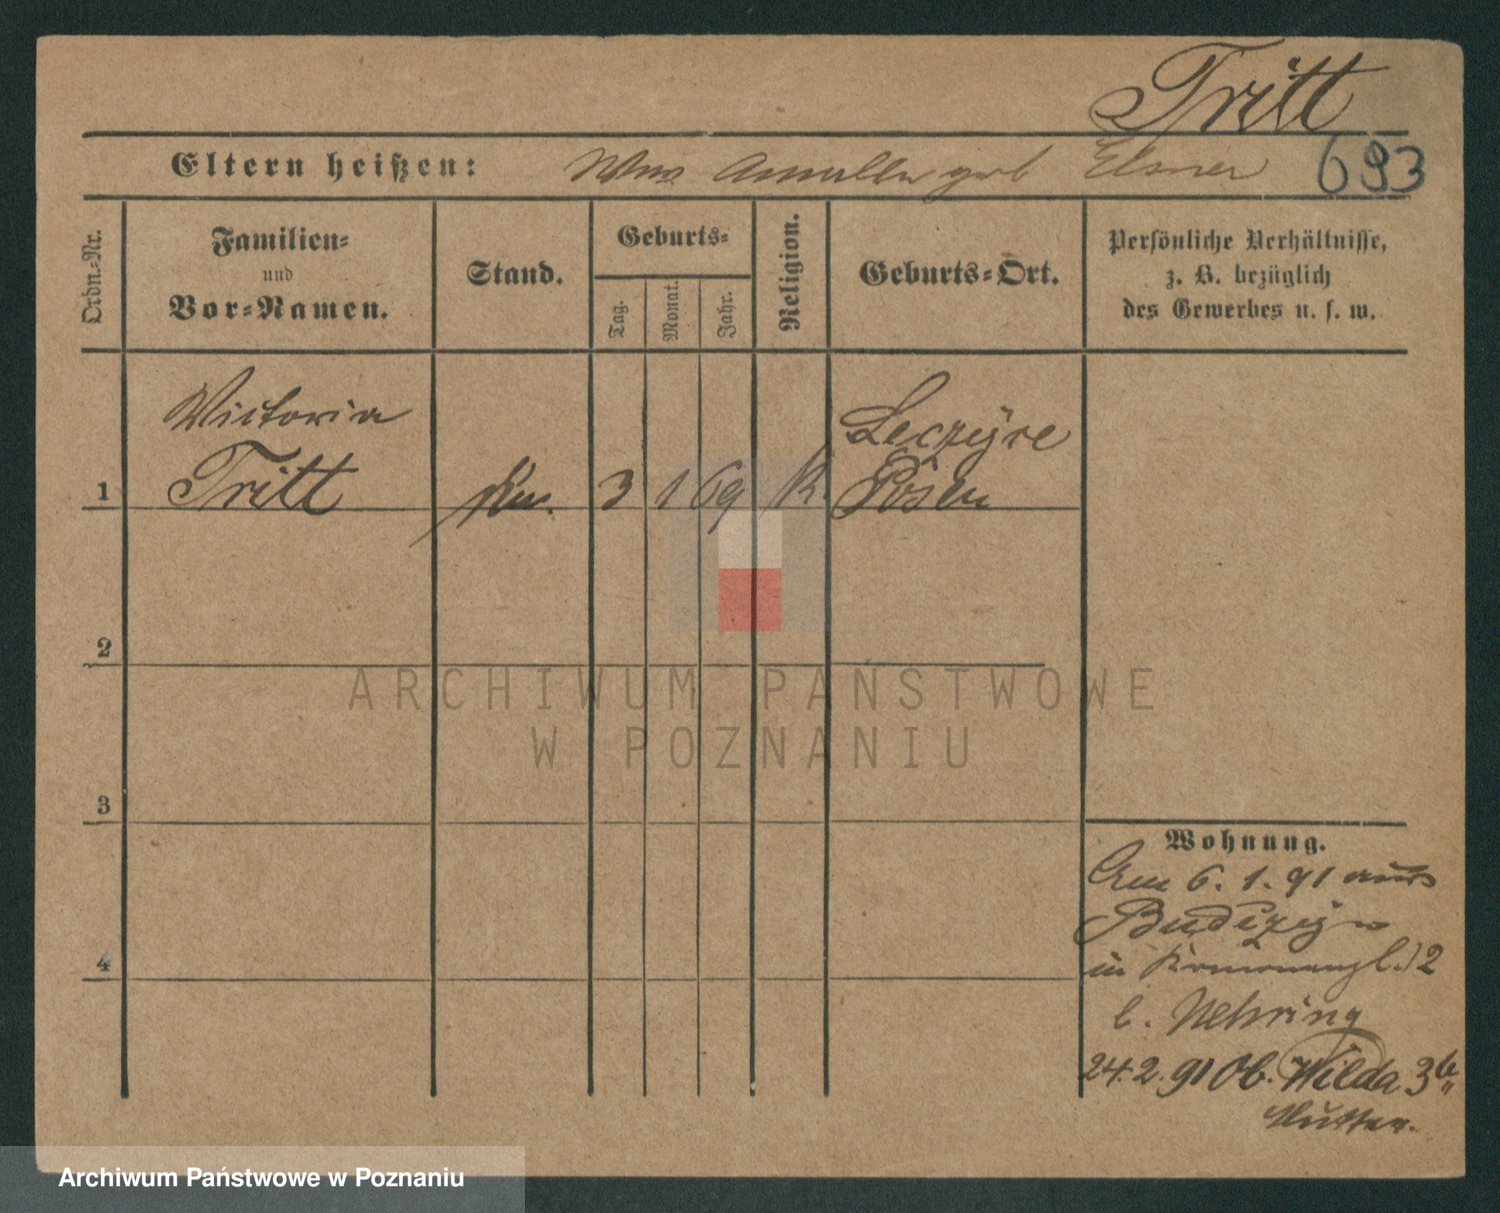 Tritt
Eltern heißen: Wwe Amalie geb Elsner 693
Ordn.-Nr.
Familien-
und
Vor-Namen.
Stand.
Geburts-
Tag.
Monat.
Jahr.
Religion.
Geburts-Ort.
Persönliche Verhältnisse,
z. B. bezüglich
des Gewerbes u. s. w.
Victoria
Tritt
1
3 1 69 K.
Leczyce
Posen
2
3
4
ARCHIWUM PAŃSTWOWE
W POZNANIU
Wohnung.
Am 6. 1. 91 aus
in 12
b. Nehring
24. 2. 91 Ob. Wilda 3
Mutter.
Archiwum Państwowe w Poznaniu